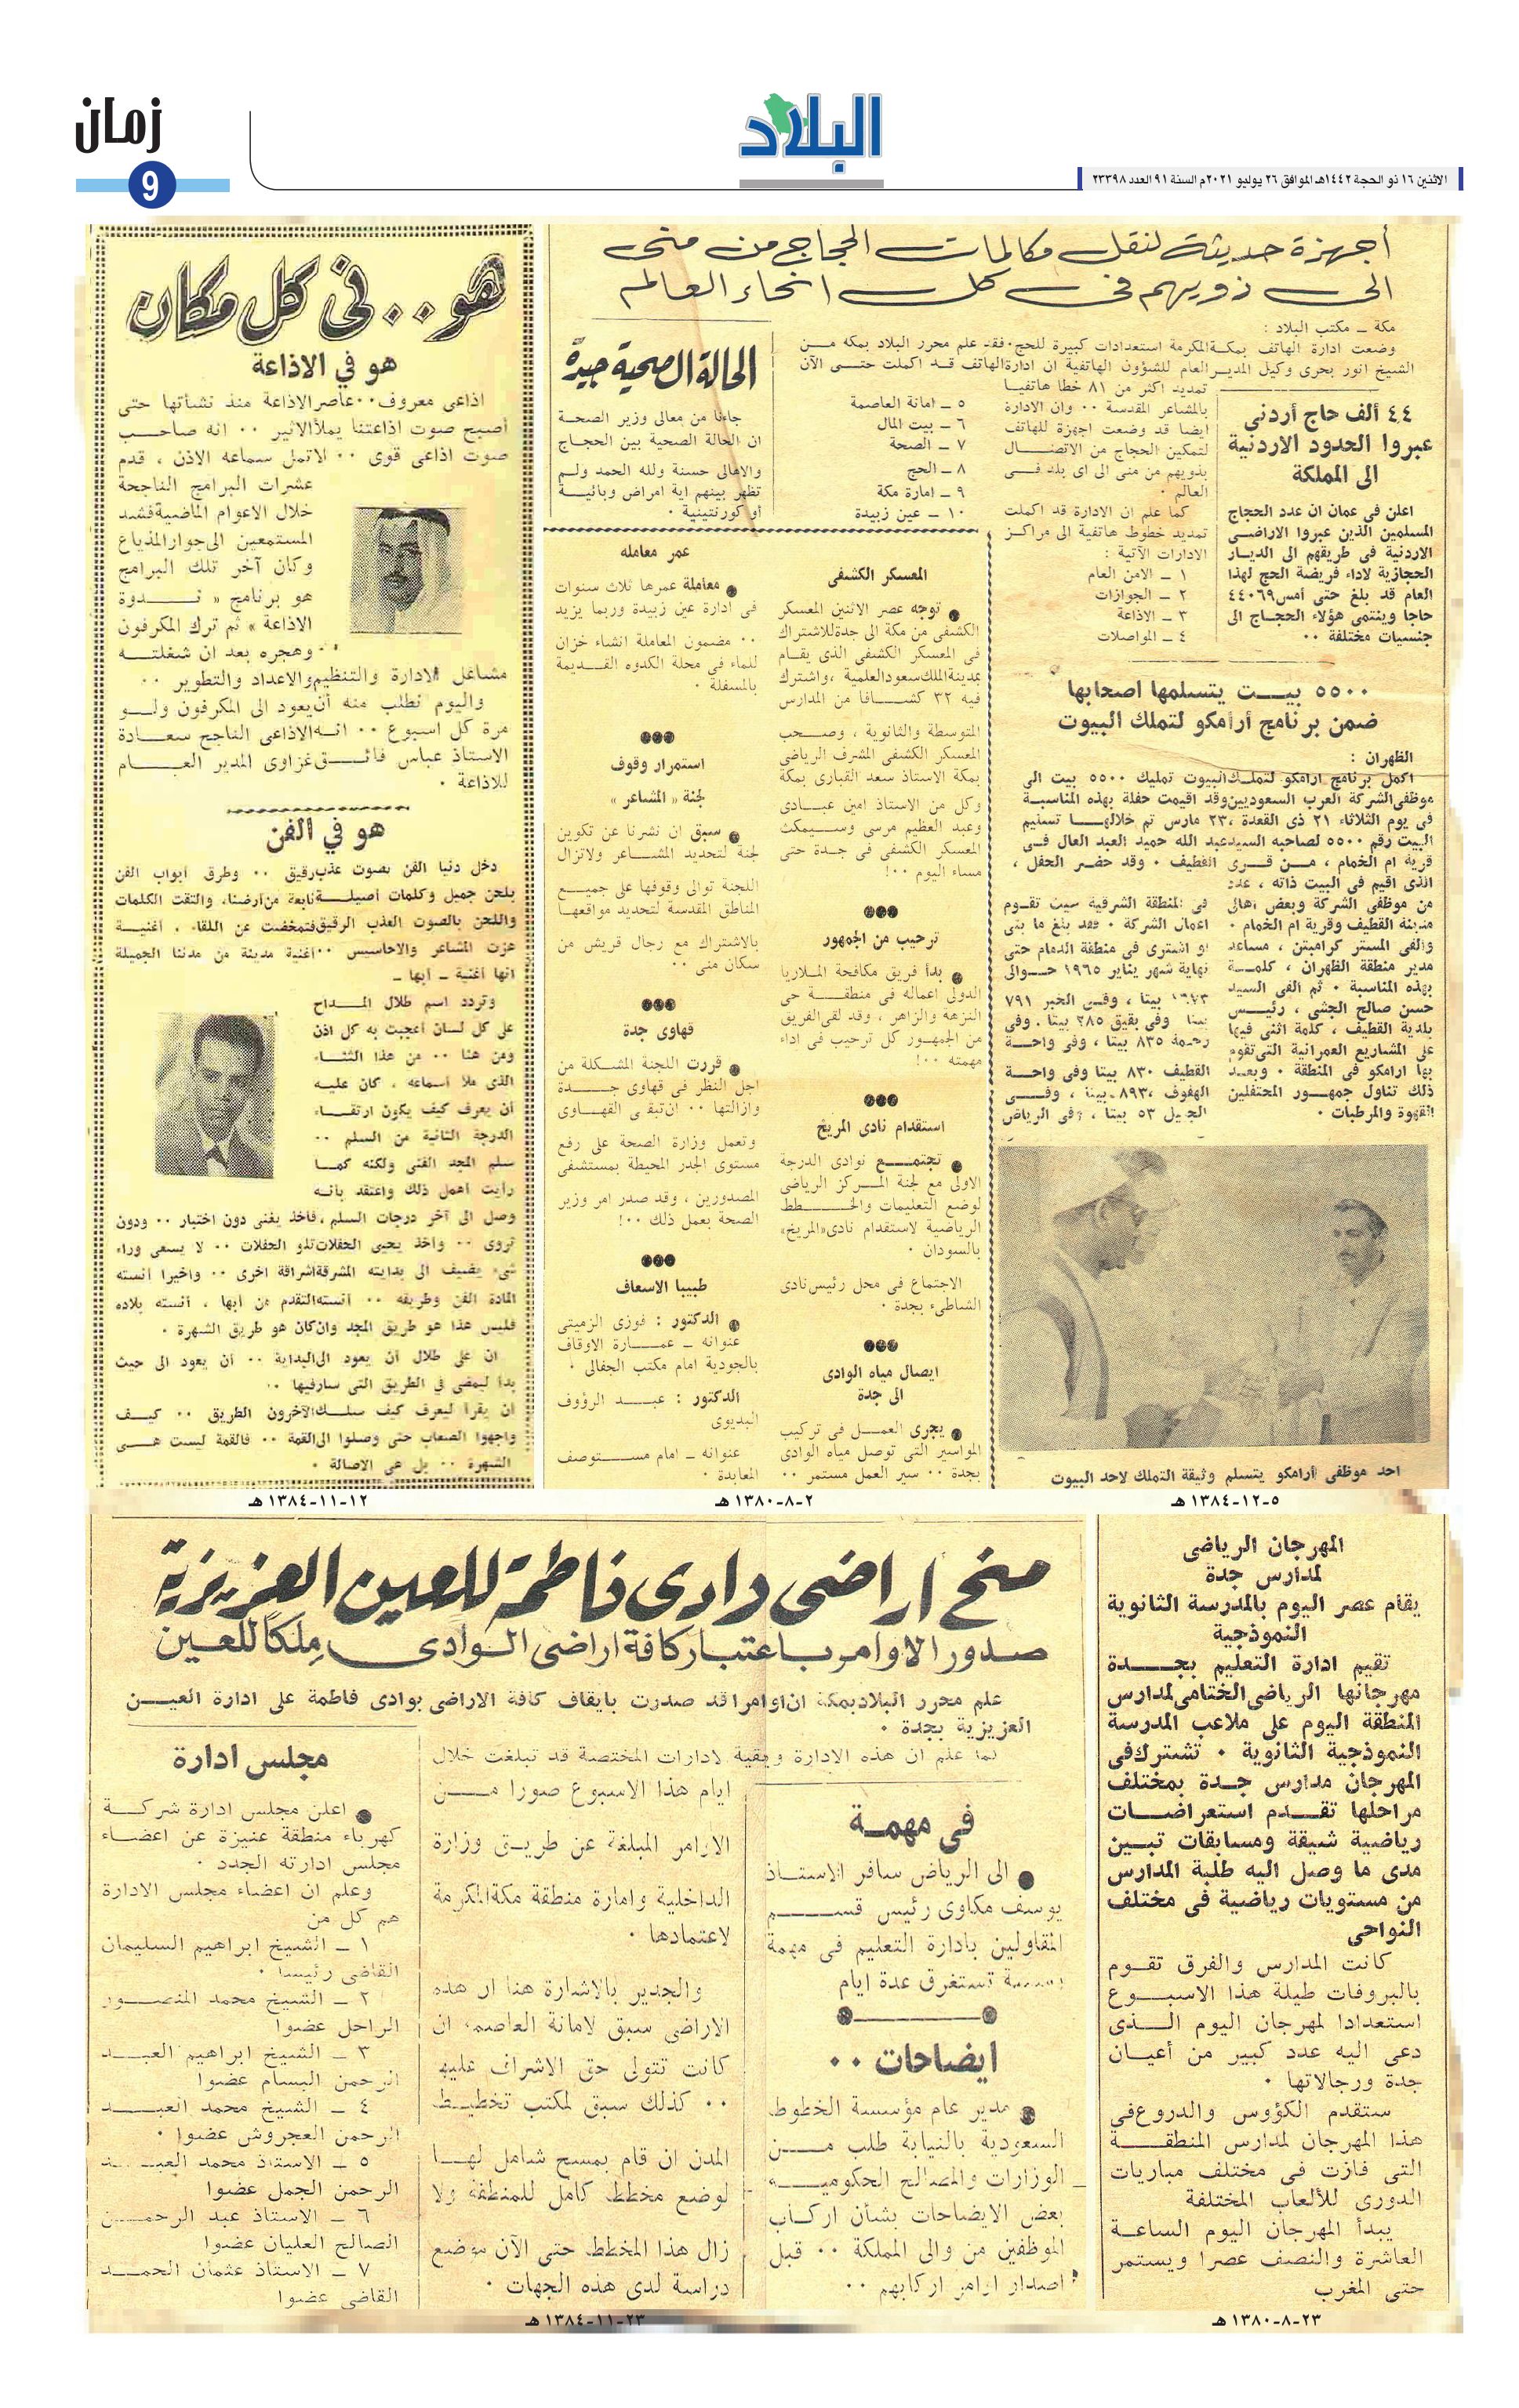 زمان
9
البلاد
الاثنين ١٦ ذو الحجة ١٤٤٢هـ الموافق ٢٦ يوليو ٢٠٢١م السنة ٩١ العدد ٢٣٣٩٨
أجهزة حديثة لنقل مكالمات الحجاج من منى
الى ذويهم فى كل انحاء العالم
مكة ــ مكتب البلاد :
وضعت ادارة الهاتف بمكة المكرمة استعدادات كبيرة للحج . فقد علم محرر البلاد بمكه مــن
الشيخ انور بحرى وكيل المدير العام للشؤون الهاتفية ان ادارة الهاتف قد اكملت حتى الآن
تمديد اكثر من ٨١ خطا هاتفيا
بالمشاعر المقدسة ٠٠ وان الادارة
ايضا قد وضعت اجهزة للهاتف
لتمكين الحجاج من الاتصال
بذويهم من منى الى اى بلد فى
العالم ٠
كما علم ان الادارة قد اكملت
تمديد خطوط هاتفية الى مراكز
الادارات الآتية :
١ ــ الامن العام
٢ ــ الجوازات
٣ ــ الاذاعة
٤ ــ المواصلات
٥ ــ امانة العاصمة
٦ ــ بيت المال
٧ ــ الصحة
٨ ــ الحج
٩ ــ امارة مكة
١٠ ــ عين زبيدة
٤٤ ألف حاج أردنى
عبروا الحدود الاردنية
الى المملكة
اعلن فى عمان ان عدد الحجاج
المسلمين الذين عبروا الاراضى
الاردنية فى طريقهم الى الديار
الحجازية لاداء فريضة الحج لهذا
العام قد بلغ حتى أمس ٤٤٠٦٩
حاجا وينتمى هؤلاء الحجاج الى
جنسيات مختلفة ٠٠
الحالة الصحية جيدة
جاءنا من معالى وزير الصحة
ان الحالة الصحية بين الحجاج
والاهالى حسنة ولله الحمد ولم
تظهر بينهم اية امراض وبائية
أو كورنتينية ٠
٥٥٠٠ بيــت يتسلمها اصحابها
ضمن برنامج أرامكو لتملك البيوت
الظهران :
اكمل برنامج ارامكو لتملك البيوت تمليك ٥٥٠٠ بيت الى
موظفى الشركة العرب السعوديين وقد اقيمت حفلة بهذه المناسبة
فى يوم الثلاثاء ٢١ ذى القعدة ، ٢٣ مارس تم خلالها تسليم
البيت رقم ٥٥٠٠ لصاحبه السيد عبد الله حميد العبد العال فى
قرية ام الخمام ، من قرى القطيف ٠ وقد حضر الحفل ،
الذى اقيم فى البيت ذاته ، عدد
من موظفى الشركة وبعض اهالى
مدينة القطيف وقرية ام الخمام ٠
والقى المستر كرامبتن ، مساعد
مدير منطقة الظهران ، كلمة
بهذه المناسبة ٠ ثم القى السيد
حسن صالح الجشى ، رئيس
بلدية القطيف ، كلمة اثنى فيها
على المشاريع العمرانية التى تقوم
بها ارامكو فى المنطقة ٠ وبعد
ذلك تناول جمهور المحتفلين
القهوة والمرطبات ٠
فى المنطقة الشرقية حيث تقوم
اعمال الشركة ٠ فقد بلغ ما بنى
او اشترى فى منطقة الدمام حتى
نهاية شهر يناير ١٩٦٥ حوالى
بيتا ، وفى الخبر ٧٩١
بيتا وفى بقيق ٢٨٥ بيتا . وفى
رحيمة ٨٣٥ بيتا ، وفى واحة
القطيف ٨٣٠ بيتا وفى واحة
الهفوف ٨٩٣ بيتا ، وفى
الجبيل ٥٣ بيتا ، وفى الرياض
احد موظفى أرامكو يتسلم وثيقة التملك لاحد البيوت
٥-١٢-١٣٨٤هـ
المعسكر الكشفى
● توجه عصر الاثنين المعسكر
الكشفى من مكة الى جدة للاشتراك
فى المعسكر الكشفى الذى يقام
بمدينة الملك سعود العلمية ، واشترك
فيه ٣٢ كشافا من المدارس
المتوسطة والثانوية ، وصحب
المعسكر الكشفى المشرف الرياضى
بمكة الاستاذ سعد القبارى بمكة
وكل من الاستاذ امين عبادى
وعبد العظيم مرسى وسيمكث
المعسكر الكشفى فى جدة حتى
مساء اليوم ٠٠!
ترحيب من الجمهور
● بدأ فريق مكافحة الملاريا
الدولى اعماله فى منطقة حى
النزهة والزاهر ، وقد لقى الفريق
من الجمهور كل ترحيب فى اداء
مهمته ٠٠!
استقدام نادى المريخ
● تجتمع نوادى الدرجة
الاولى مع لجنة المركز الرياضى
لوضع التعليمات والخطط
الرياضية لاستقدام نادى «المريخ»
بالسودان ٠
الاجتماع فى محل رئيس نادى
الشاطىء بجدة ٠
ايصال مياه الوادى
الى جدة
● يجرى العمل فى تركيب
المواسير التى توصل مياه الوادى
بجدة ٠٠ سير العمل مستمر ٠٠
عمر معامله
● معاملة عمرها ثلاث سنوات
فى ادارة عين زبيدة وربما يزيد
٠٠ مضمون المعاملة انشاء خزان
للماء فى محلة الكدوه القديمة
بالمسفلة ٠
استمرار وقوف
لجنة « المشاعر »
● سبق ان نشرنا عن تكوين
لجنة لتحديد المشاعر ولاتزال
اللجنة توالى وقوفها على جميع
المناطق المقدسة لتحديد مواقعها
بالاشتراك مع رجال قريش من
سكان منى ٠٠
قهاوى جدة
● قررت اللجنة المشكلة من
اجل النظر فى قهاوى جدة
وازالتها ٠٠ ان تبقى القهاوى
وتعمل وزارة الصحة على رفع
مستوى الجدر المحيطة بمستشفى
المصدورين ، وقد صدر امر وزير
الصحة بعمل ذلك ٠٠!
طبيبا الاسعاف
● الدكتور : فوزى الزميتى
عنوانه ــ عمارة الاوقاف
بالجودية امام مكتب الجفالى ٠
الدكتور : عبد الرؤوف
البديوى
عنوانه ــ امام مستوصف
المعابدة ٠
٢-٨-١٣٨٠هـ
هو٠٠ فى كل مكان
هو في الاذاعة
اذاعى معروف ٠٠ عاصر الاذاعة منذ نشأتها حتى
أصبح صوت اذاعتنا يملأ الاثير ٠٠ انه صاحب
صوت اذاعى قوى ٠٠ لا تمل سماعه الاذن ، قدم
عشرات البرامج الناجحة
خلال الاعوام الماضية فشد
المستمعين الى جوار المذياع
وكان آخر تلك البرامج
هو برنامج « ندوة
الاذاعة » ثم ترك المكرفون
وهجره بعد ان شغلته
مشاغل الادارة والتنظيم والاعداد والتطوير ٠٠
واليوم نطلب منه أن يعود الى المكرفون ولو
مرة كل اسبوع ٠٠ انه الاذاعى الناجح سعادة
الاستاذ عباس فائق غزاوى المدير العام
للاذاعة ٠
هو في الفن
دخل دنيا الفن بصوت عذب رقيق ٠٠ وطرق أبواب الفن
بلحن جميل وكلمات أصيلة نابعة من أرضنا، والتقت الكلمات
واللحن بالصوت العذب الرقيق فتمخضت عن اللقاء . أغنية
هزت المشاعر والاحاسيس ٠٠ أغنية مدينة من مدننا الجميلة
انها أغنية ــ أبها ــ
وتردد اسم طلال المداح
على كل لسان أعجبت به كل اذن
ومن هنا ٠٠ من هذا الثناء
الذى ملأ أسماعه . كان عليه
أن يعرف كيف يكون ارتقاء
الدرجة الثانية من السلم ٠٠
سلم المجد الفنى ولكنه كما
رأيت أهمل ذلك واعتقد بأنه
وصل الى آخر درجات السلم، فأخذ يغنى دون اختيار ٠٠ ودون
تروى ٠٠ وأخذ يحيى الحفلات تلو الحفلات ٠٠ لا يسعى وراء
شىء يضيف الى بدايته المشرقة اشراقة اخرى ٠٠ واخيرا أنسته
المادة الفن وطريقه ٠٠ أنسته التقدم من أبها . أنسته بلاده
فليس هذا هو طريق المجد وان كان هو طريق الشهرة ٠
ان على طلال أن يعود الى البداية ٠٠ أن يعود الى حيث
بدأ ليمضى في الطريق التى سار فيها ٠٠
أن يقرأ ليعرف كيف سلك الآخرون الطريق ٠٠ كيف
واجهوا الصعاب حتى وصلوا الى القمة ٠٠ فالقمة ليست هى
الشهرة ٠٠ بل هى الاصالة ٠
١٢-١١-١٣٨٤هـ
المهرجان الرياضى
لمدارس جدة
يقام عصر اليوم بالمدرسة الثانوية
النموذجية
تقيم ادارة التعليم بجدة
مهرجانها الرياضى الختامى لمدارس
المنطقة اليوم على ملاعب المدرسة
النموذجية الثانوية ٠ تشترك فى
المهرجان مدارس جدة بمختلف
مراحلها تقدم استعراضات
رياضية شيقة ومسابقات تبين
مدى ما وصل اليه طلبة المدارس
من مستويات رياضية فى مختلف
النواحى
كانت المدارس والفرق تقوم
بالبروفات طيلة هذا الاسبوع
استعدادا لمهرجان اليوم الذى
دعى اليه عدد كبير من أعيان
جدة ورجالاتها ٠
ستقدم الكؤوس والدروع في
هذا المهرجان لمدارس المنطقة
التى فازت فى مختلف مباريات
الدورى للألعاب المختلفة
يبدأ المهرجان اليوم الساعة
العاشرة والنصف عصرا ويستمر
حتى المغرب
٢٣-٨-١٣٨٠هـ
منح اراضى وادى فاطمة للعين العزيزية
صدور الاوامر باعتبار كافة اراضى الوادى ملكاً للعين
علم محرر البلاد بمكة ان اوامرا قد صدرت بايقاف كافة الاراضى بوادى فاطمة على ادارة العين
العزيزية بجدة ٠
كما علم ان هذه الادارة وبقية الادارات المختصة قد تبلغت خلال
ايام هذا الاسبوع صورا من
الاوامر المبلغة عن طريق وزارة
الداخلية وامارة منطقة مكة المكرمة
لاعتمادها ٠
والجدير بالاشارة هنا ان هذه
الاراضى سبق لامانة العاصمة ان
كانت تتولى حق الاشراف عليها
٠٠ كذلك سبق لمكتب تخطيط
المدن ان قام بمسح شامل لها
لوضع مخطط كامل للمنطقة ولا
زال هذا المخطط حتى الآن موضع
دراسة لدى هذه الجهات ٠
فى مهمة
● الى الرياض سافر الاستاذ
يوسف مكاوى رئيس قسم
المقاولين بادارة التعليم فى مهمة
تستغرق عدة ايام
ايضاحات ٠٠
● مدير عام مؤسسة الخطوط
السعودية بالنيابة طلب من
الوزارات والمصالح الحكومية
بعض الايضاحات بشأن اركاب
الموظفين من والى المملكة ٠٠ قبل
اصدار اوامر اركابهم ٠٠
مجلس ادارة
● اعلن مجلس ادارة شركة
كهرباء منطقة عنيزة عن اعضاء
مجلس ادارته الجدد ٠
وعلم ان اعضاء مجلس الادارة
هم كل من
١ ــ الشيخ ابراهيم السليمان
القاضى رئيسا ٠
٢ ــ الشيخ محمد المنصور
الراحل عضوا
٣ ــ الشيخ ابراهيم العبد
الرحمن البسام عضوا
٤ ــ الشيخ محمد العبد
الرحمن العجروش عضوا ٠
٥ ــ الاستاذ محمد العبد
الرحمن الجمل عضوا
٦ ــ الاستاذ عبد الرحمن
الصالح العليان عضوا
٧ ــ الاستاذ عثمان الحمد
القاضى عضوا
٢٣-١١-١٣٨٤هـ